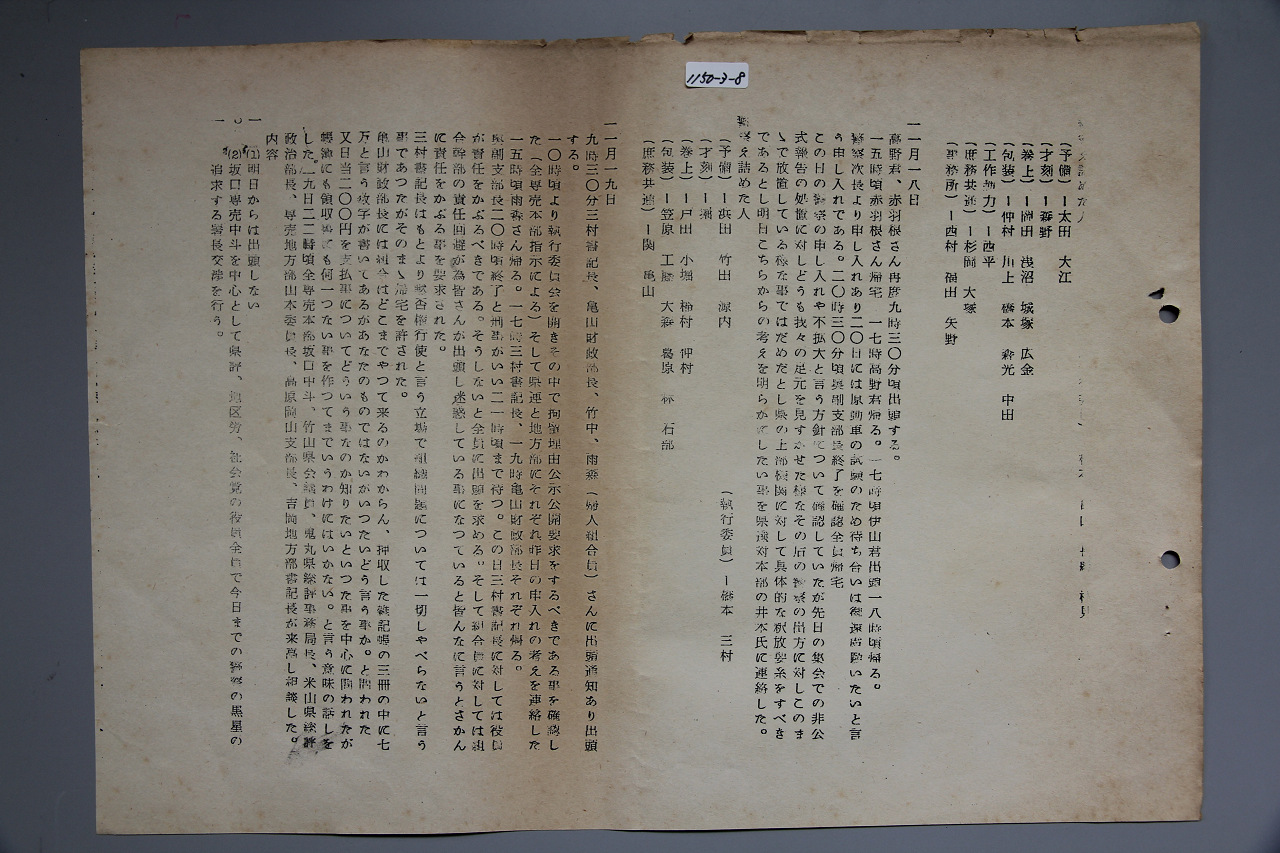 1150-3-8
(予備)ー太田 大江
(才刻)ー春野
(巻上)ー岡田 浅沼 城塚 広金
(包装)ー仲村 川上 橋本 森光 中田
(工作動力)ー西平
(庶務共通)ー杉岡 大塚
(事務所)ー西村 福田 矢野
一一月一八日
高野君、赤羽根さん再度九時三〇分頃出頭する。
一五時頃赤羽根さん帰宅 一七時高野君帰る。一七時頃伊山君出頭一八時頃帰る。
警察次長より申し入れあり二〇日には原動車の試験のため待ち合いは御遠慮願いたいと言
う申し入れである。二〇時三〇分頃奥副支部長終了を確認全員帰宅
この日の警察の申し入れや不払大と言う方針について確認していたが先日の集会での非公
式報告の処置に対しどうも我々の足元を見すかせた様なその后の警察の出方に対しこのま
ゝで放置している様な事ではだめだとし県の上部機関に対して具体的な釈放要求をすべき
であるとし明日こちらからの考えを明らかにしたい事を県強対本部の井本氏に連絡した。
警察え詰めた人
(予備)ー浜田 竹田 源内
(執行委員)ー橋本 三村
(才刻)ー堀
(巻上)ー戸田 小堀 楢村 仲村
(包装)ー笠原 工藤 大森 葛原 林 石部
(庶務共通)ー関 亀山
一一月一九日
九時三〇分三村書記長、亀山財政部長、竹中、雨森(婦人組合員)さんに出頭通知あり出頭
する。
一〇時より執行委員会を開きその中で拘留理由公示公開要求をするべきである事を確認し
た(全専売本部指示による)そして県連と地方部にそれぞれ昨日の申入れの考えを連絡した
一五時頃雨森さん帰る。一七時三村書記長、一九時亀山財政部長それぞれ帰る。
奥副支部長二〇時頃終了と刑事がいい二一時頃まで待つ。この日三村書記長に対しては役員
が責任をかぶるべきである。そうしないと全員に出頭を求める。そして組合員に対しては組
合幹部の責任回避が為皆さんが出頭し迷惑している事になつていると皆んなに言うとさかん
に責任をかぶる事を要求された。
三村書記長はもとより黙否権行使と言う立場で組織問題については一切しやべらないと言う
事であつたがそのまゝ帰宅を許された。
亀山財政部長には組合はどこまでやつて来るのかわからん、押収した雑記帳の三冊の中に七
万と言う数字が書いてあるがあなたのものではないがいつたいどう言う事か。と問われた
又日当二〇〇円を支払事についてどういう事なのか知りたいといつた事を中心に問われたが
帳簿にも領収書にも何一つない事を作つてまでいうわけにはいかない。と言う意味の話しを
した。一九日二二時頃全専売本部坂口中斗、竹山県会議員、鬼丸県総評事務局長、米山県総評
政治部長、専売地方部山本委員長、高原岡山支部長、吉岡地方部書記長が来高し相談した。
内容
(1)明日からは出頭しない
(2)坂口専売中斗を中心として県評、地区労、社会党の役員全員で今日までの警察の黒星の
追求する署長交渉を行う。